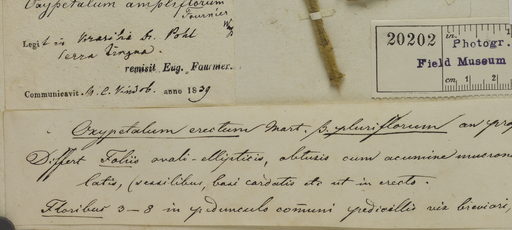 Oxypetalum ampliflorum
Fournier
Legit in Brasilia Dr. Pohl
Terra Tingua.
remisit Eug. Fournier.
Communicavit M. C. Vindob. anno 1839
20202
in.
Photogr.
Field Museum
cm. 1 2
Oxypetalum erectum Mart. β. pluriflorum an pro
Differt Foliis ovali-ellipticis, obtusis cum acumine mucron
latis, (sessilibus, basi cordatis etc ut in erecto.
Floribus 3-8 in pedunculo comuni pedicellis vix breviori,